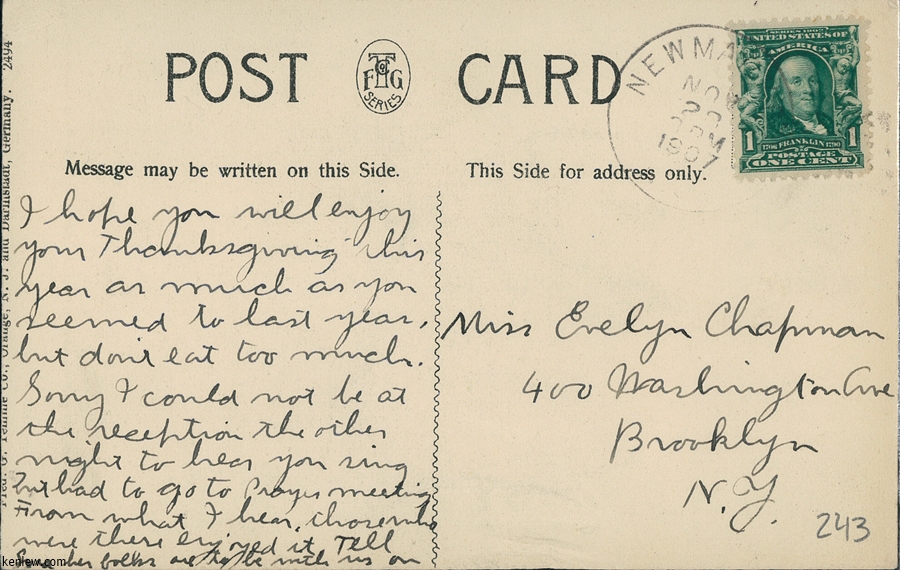 POST CARD
FTG Co
SERIES
NEWMA
NOV
PM
1907
SERIES 1902
UNITED STATES OF
AMERICA
1 1
1706 FRANKLIN 1790
POSTAGE
ONE CENT
Message may be written on this Side.
I hope you will enjoy
your Thanksgiving this
year as much as you
seemed to last year,
but don't eat too much.
Sorry I could not be at
the reception the other
night to hear you sing
but had to go to Prayer meeting
From what I hear, those who
were there enjoyed it. Tell
folks are to be with us on
This Side for address only.
Miss Evelyn Chapman
400 Washington Ave
Brooklyn
N.Y.
243
Co., Orange, N. J. and Darmstadt, Germany. 2494
kenlew.com